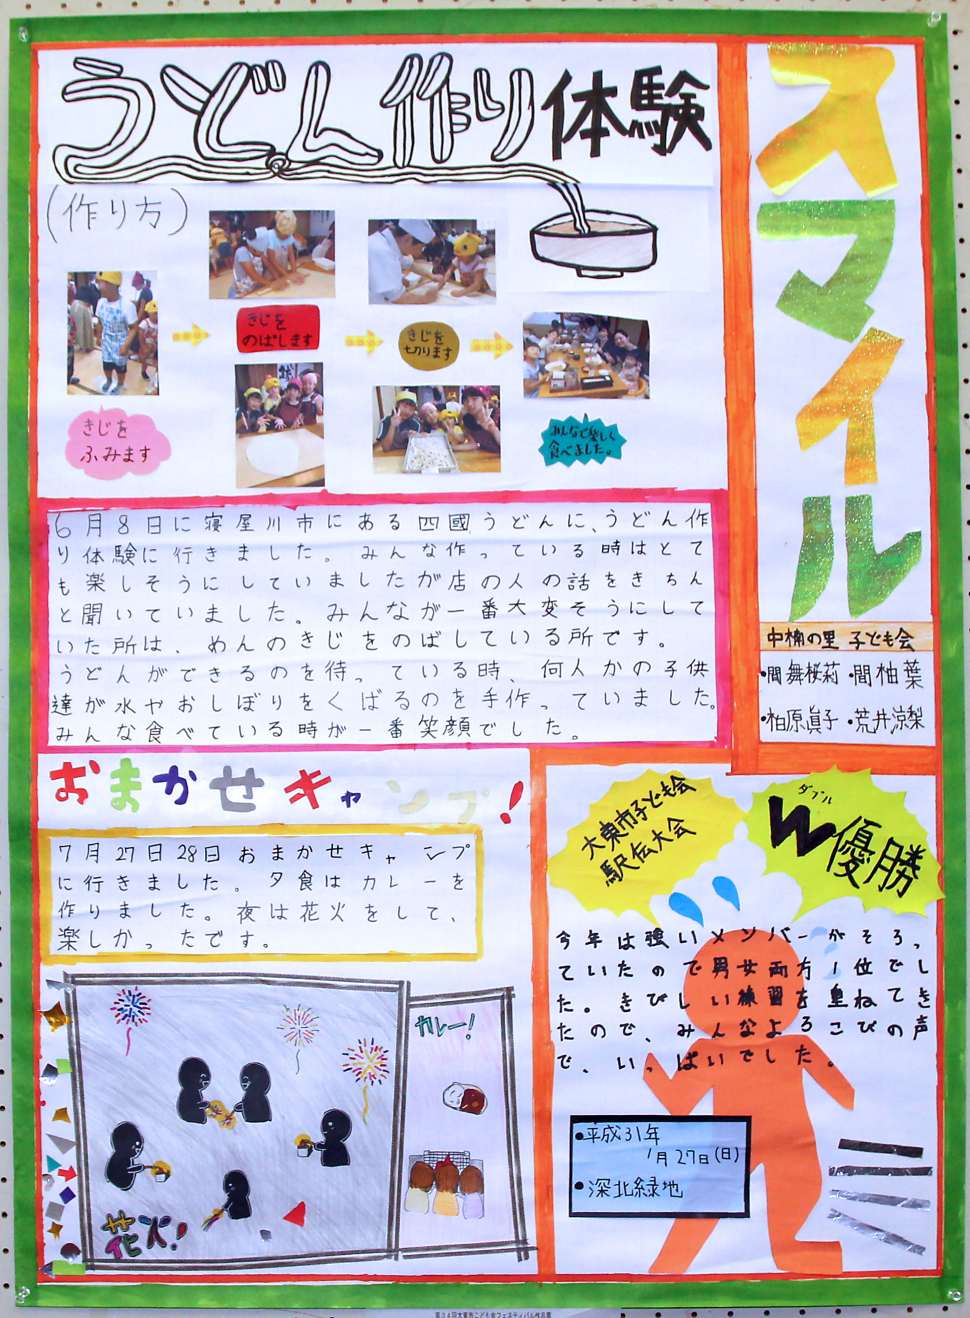 スマイル
中楠の里 子ども会
・間舞桜莉 ・間柚葉
・柏原眞子 ・荒井涼梨
うどん作り体験
(作り方)
きじを
ふみます
きじを
のばします
きじを
切ります
みんなで楽しく
食べました。
6月8日に寝屋川市にある四國うどんに、うどん作
り体験に行きました。みんな作っている時はとて
も楽しそうにしていましたが店の人の話をきちん
と聞いていました。みんなが一番大変そうにして
いた所は、めんのきじをのばしている所です。
うどんができるのを待っている時、何人かの子供
達が水やおしぼりをくばるのを手作っていました。
みんな食べている時が一番笑顔でした。
おまかせキャンプ!
7月27日28日おまかせキャンプ
に行きました。夕食はカレーを
作りました。夜は花火をして、
楽しかったです。
花火!
カレー!
大東市子ども会
駅伝大会
ダブル
W優勝
今年は強いメンバーがそろっ
ていたので男女両方1位でし
た。きびしい練習を重ねてき
たので、みんなよろこびの声
で、いっぱいでした。
・平成31年
1月27日(日)
・深北緑地